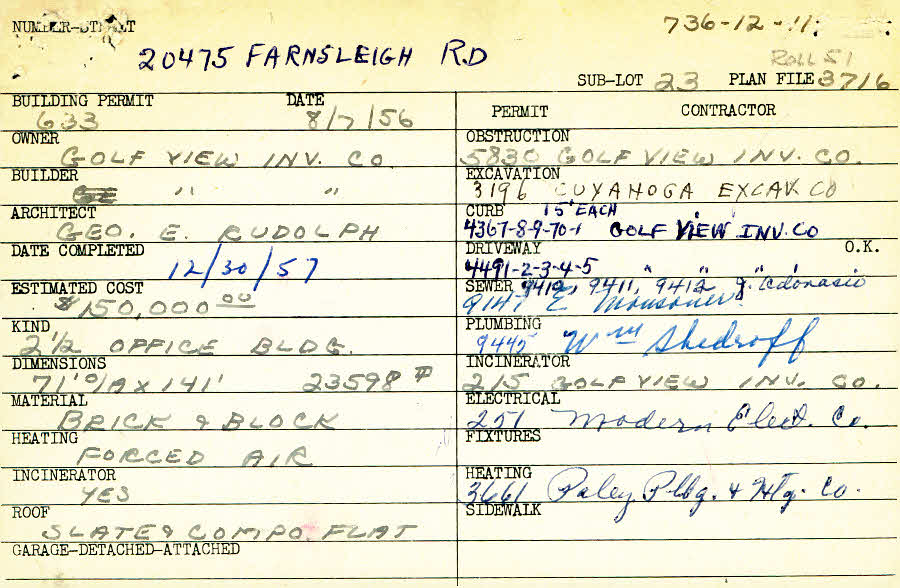 NUMBER-STREET
736-12-11
20475 FARNSLEIGH RD
ROLL 51
SUB-LOT 23 PLAN FILE 3716
BUILDING PERMIT DATE
633 8/7/56
OWNER
GOLF VIEW INV. CO
BUILDER
" "
ARCHITECT
GEO. E. RUDOLPH
DATE COMPLETED
12/30/57
ESTIMATED COST
$150,000 00
KIND
2 1/2 OFFICE BLDG.
DIMENSIONS
71' x 141' 23598
MATERIAL
BRICK & BLOCK
HEATING
FORCED AIR
INCINERATOR
YES
ROOF
SLATE & COMPO. FLAT
GARAGE-DETACHED-ATTACHED
PERMIT CONTRACTOR
OBSTRUCTION
5830 GOLF VIEW INV. CO.
EXCAVATION
3196 CUYAHOGA EXCAV CO
CURB 15' EACH
4367-8-9-70-1 GOLF VIEW INV. CO
DRIVEWAY O.K.
4491-2-3-4-5
SEWER 9410, 9411, 9412
PLUMBING
9445 Wm Shedroff
INCINERATOR
215 GOLF VIEW INV. CO.
ELECTRICAL
251 Modern Elect. Co.
FIXTURES
HEATING
3661 Paley Plbg. & Htg. Co.
SIDEWALK